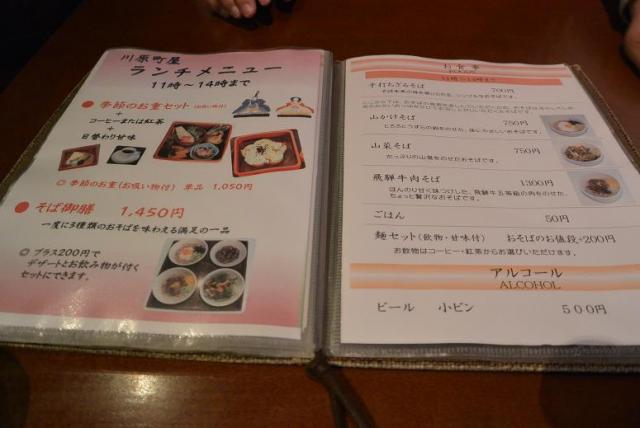 川原町屋
ランチメニュー
11時～14時まで
● 季節のお重セット (お吸い物付)
+
コーヒーまたは紅茶
+
日替わり甘味
◎ 季節のお重(お吸い物付) 単品 1,050円
● そば御膳 1,450円
一度に3種類のおそばを味わえる満足の一品
◎ プラス200円で
デザートとお飲み物が付く
セットにできます。
お食事
FOODS
11時～14時まで
手打ちざるそば 700円
山かけそば 750円
山菜そば 750円
たっぷりの山菜をのせたおそばです。
飛騨牛肉そば 1300円
ほんのり甘く味つけした、飛騨牛五等級の肉をのせた、
ちょっと贅沢なおそばです。
ごはん 50円
麺セット(飲物・甘味付) おそばのお値段+200円
お飲物はコーヒー・紅茶からお選びいただけます。
アルコール
ALCOHOL
ビール 小ビン 500円